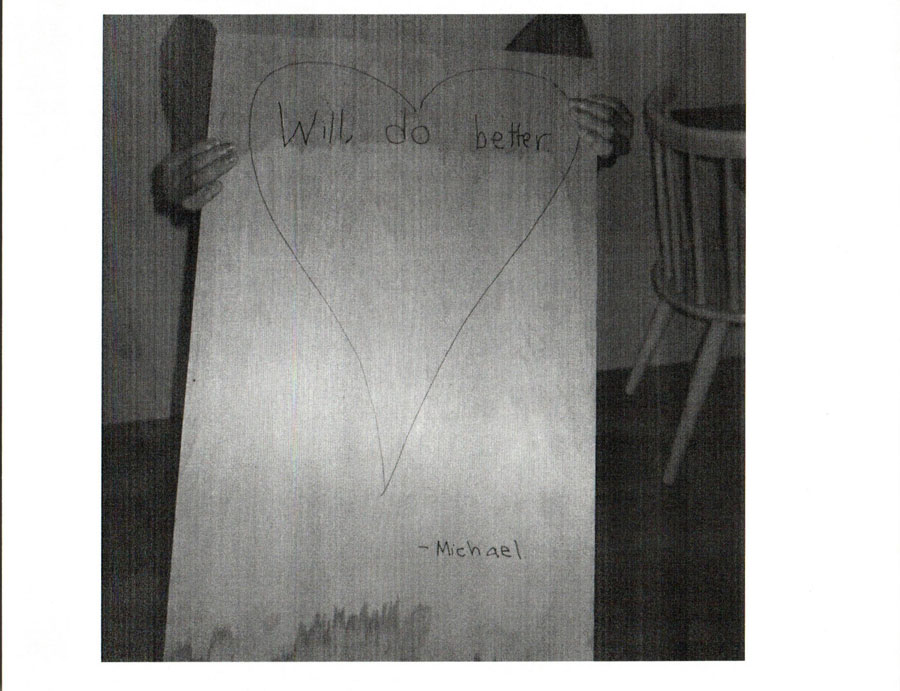 Will do better
- Michael